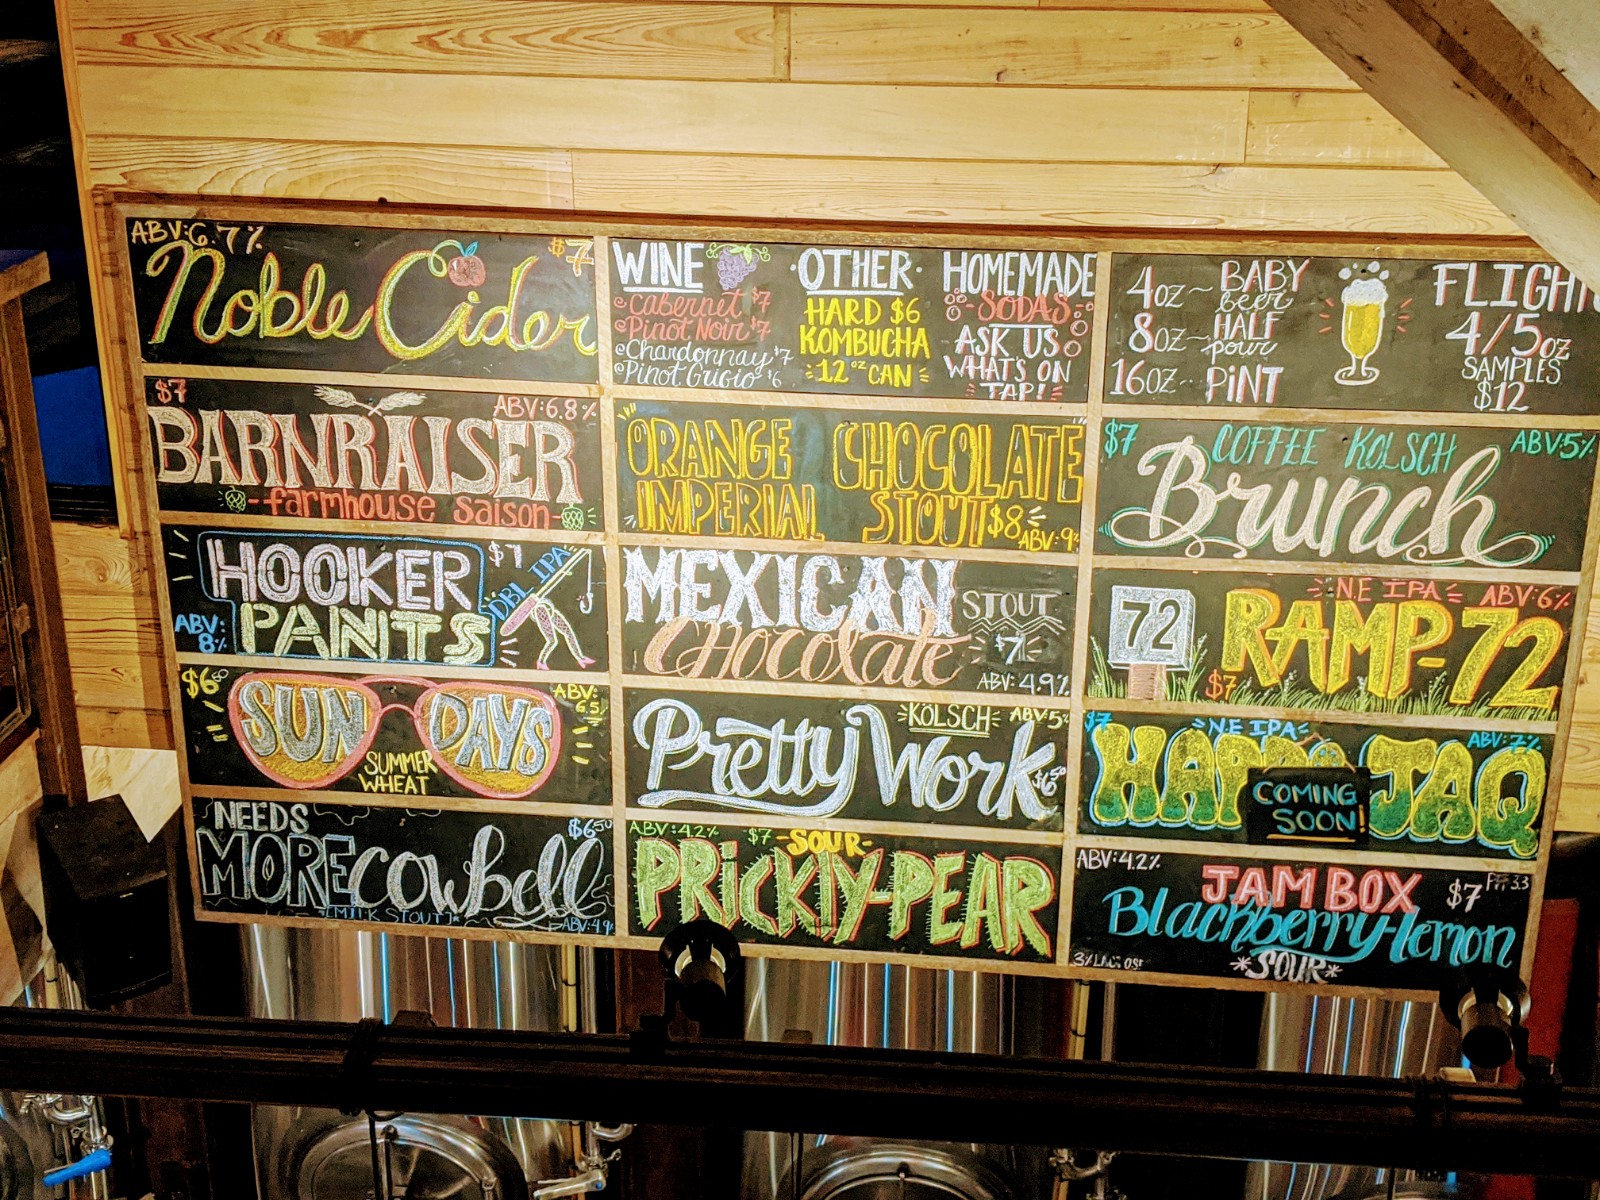 ABV: 6.7%
$7
Noble Cider
WINE
Cabernet $7
Pinot Noir $7
Chardonnay $7
Pinot Grigio $6
·OTHER·
HARD $6
KOMBUCHA
12 oz CAN
HOMEMADE
SODAS
ASK US
WHAT'S ON
TAP!
4oz ~ BABY beer
8oz ~ HALF pour
16oz ~ PiNT
FLIGHTS
4/5oz
SAMPLES
$12
$7
ABV: 6.8%
BARNRAISER
-farmhouse saison-
ORANGE CHOCOLATE
IMPERIAL STOUT
$8
ABV: 9%
$7
COFFEE KOLSCH
ABV: 5%
Brunch
HOOKER
PANTS
$7
DBL IPA
ABV: 8%
MEXICAN
Chocolate
STOUT
$7
ABV: 4.9%
N.E IPA
ABV: 6%
72
RAMP-72
$7
$6.50
SUN DAYS
SUMMER
WHEAT
ABV: 6.5%
KÖLSCH
ABV: 5%
Pretty Work
$6.50
$7
N.E IPA
ABV: 7%
JAQ
COMING
SOON!
NEEDS
MORE cowbell
$6.50
[MILK STOUT]
ABV: 4.9%
ABV: 4.2%
$7
-SOUR-
PRiCKLY-PEAR
ABV: 4.2%
JAM BOX
$7
Blackberry-lemon
*SOUR*